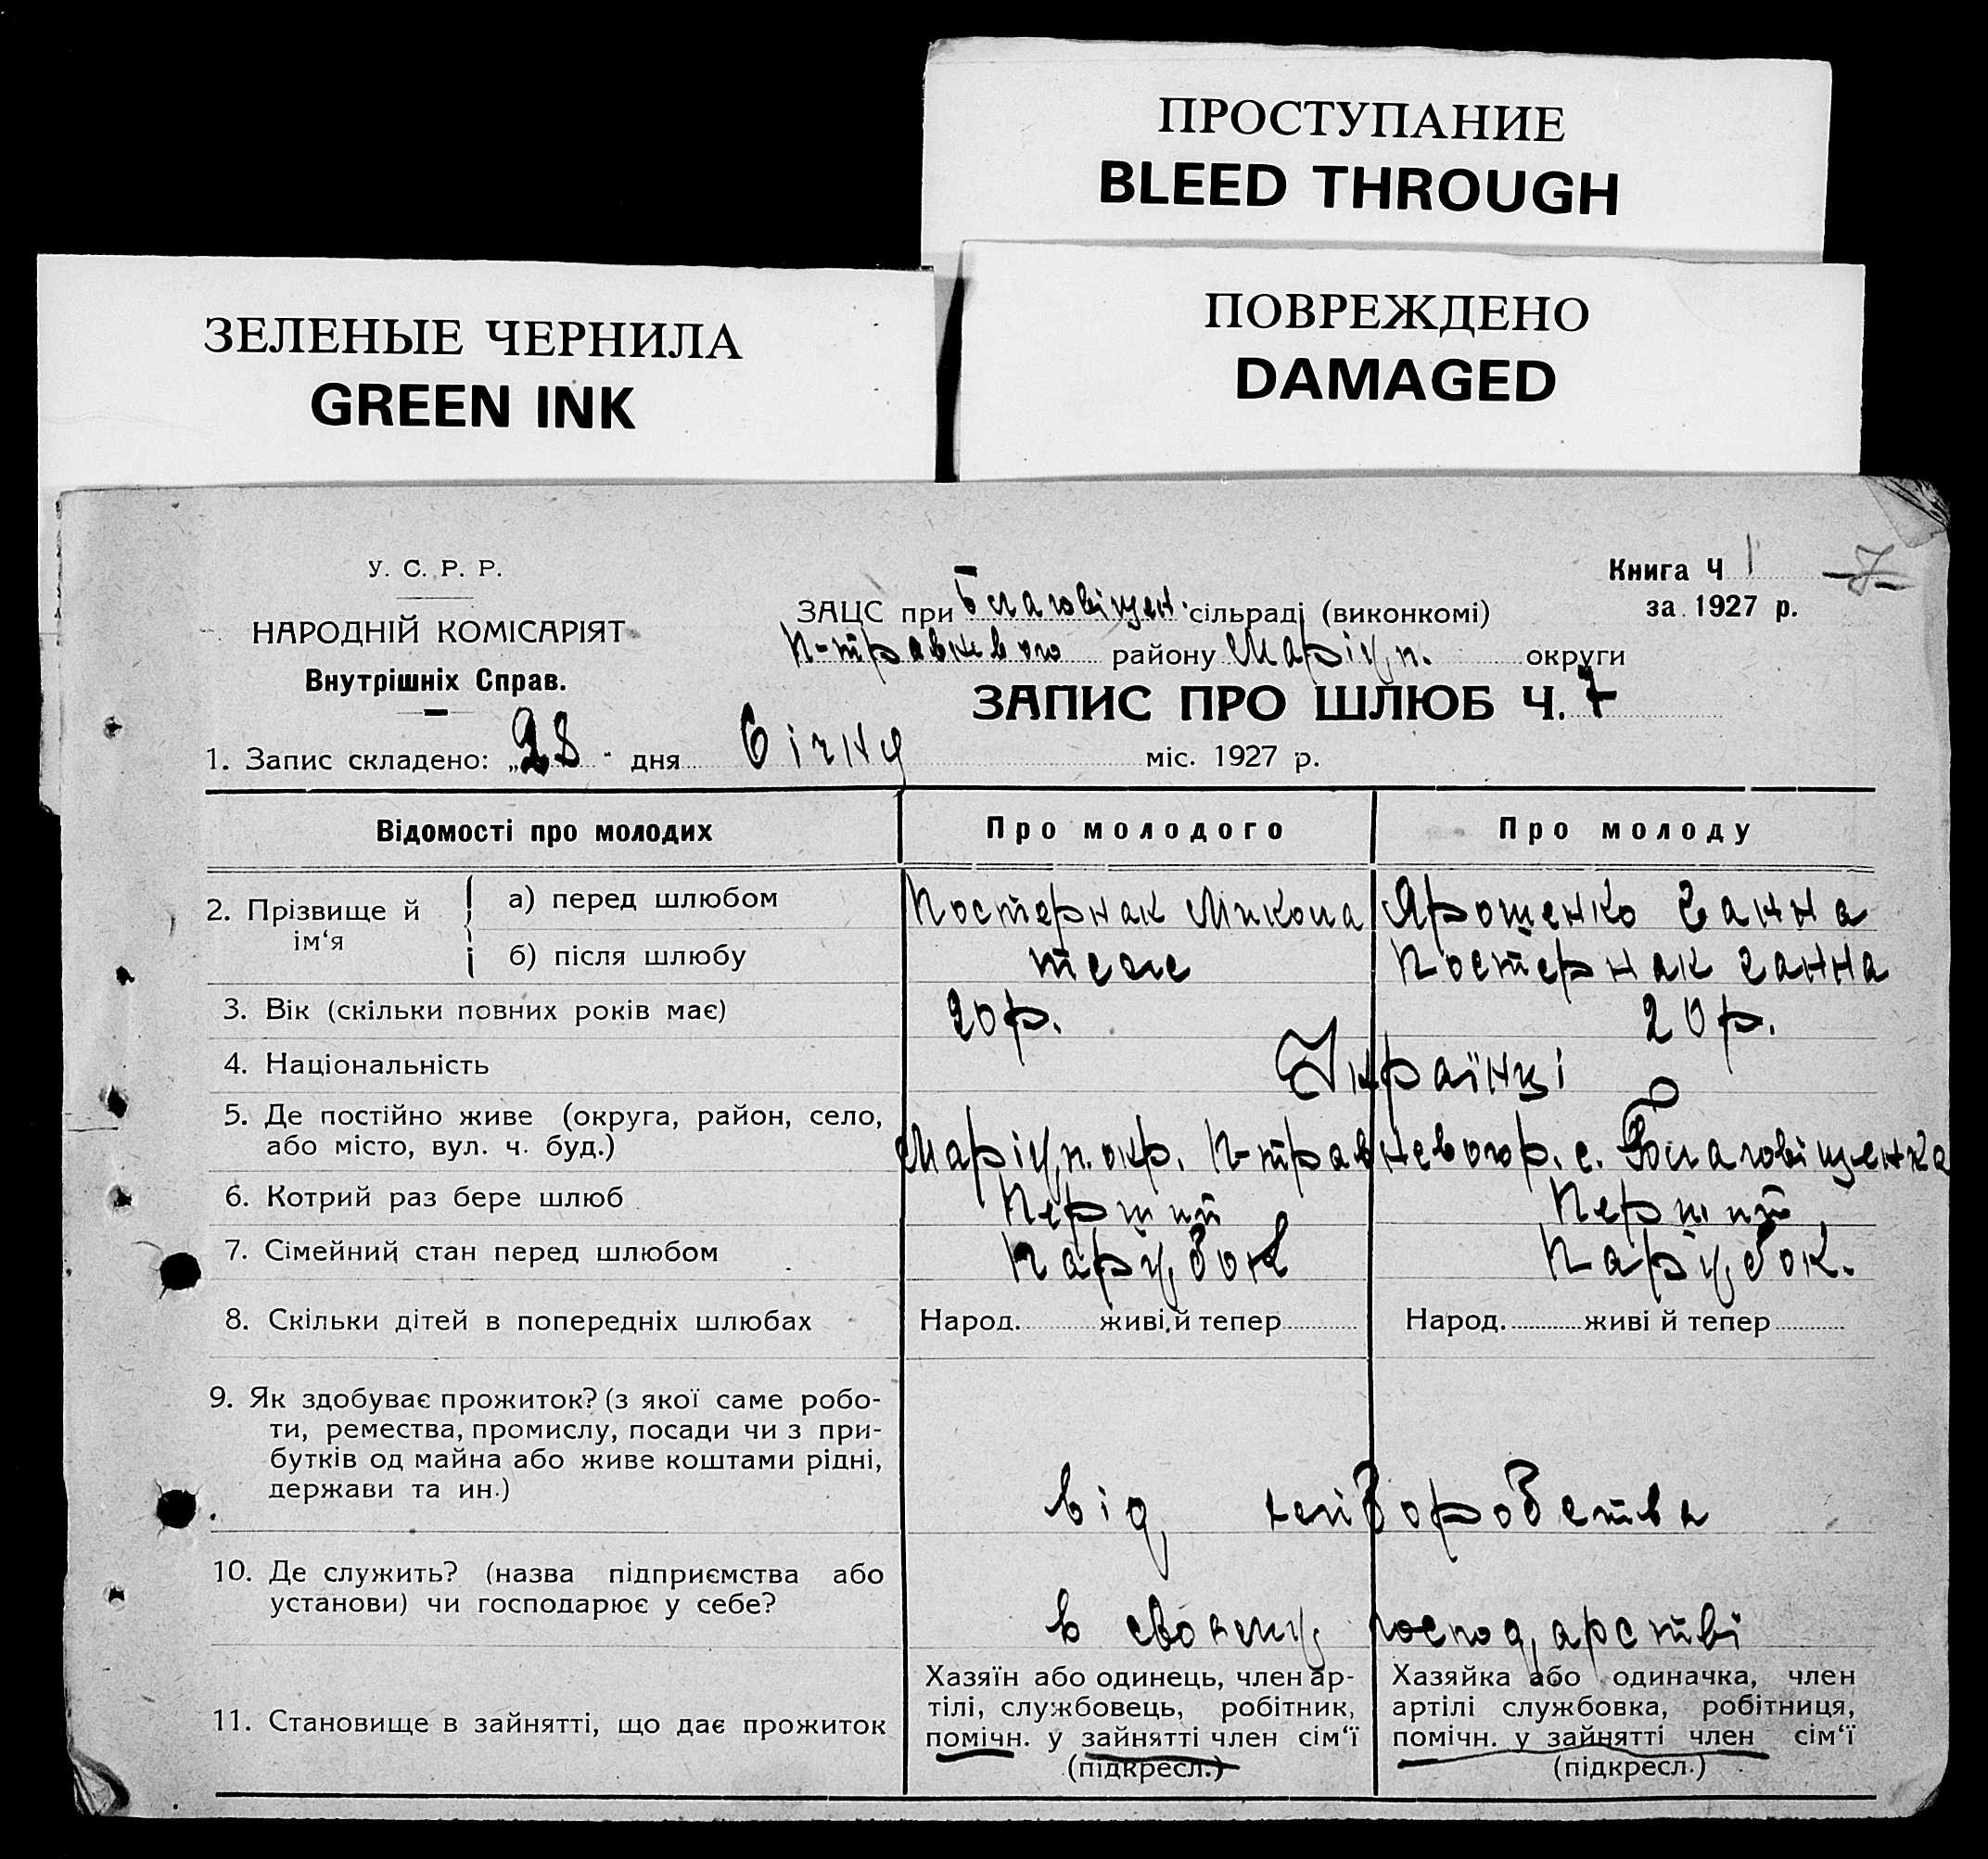 ПРОСТУПАНИЕ
BLEED THROUGH
ЗЕЛЕНЫЕ ЧЕРНИЛА
GREEN INK
ПОВРЕЖДЕНО
DAMAGED
У. С. Р. Р.
НАРОДНІЙ КОМІСАРІЯТ
Внутрішніх Справ.
Книга Ч 1 7
за 1927 р.
ЗАЦС при Благовіщен. сільраді (виконкомі)
П-травневого району Маріуп. округи
ЗАПИС ПРО ШЛЮБ Ч. 7
1. Запис складено: „28" дня Січня міс. 1927 р.
Відомості про молодих Про молодого Про молоду
2. Прізвище й ім‘я
а) перед шлюбом Постернак Микола Ярошенко Ганна
б) після шлюбу теж Постернак Ганна
3. Вік (скільки повних років має) 20 р. 20 р.
4. Національність Українці
5. Де постійно живе (округа, район, село,
або місто, вул. ч. буд.) Маріуп. окр. П-травневого р. с. Благовіщенка
6. Котрий раз бере шлюб Перший Перший
7. Сімейний стан перед шлюбом Парубок Парубок.
8. Скільки дітей в попередніх шлюбах Народ. живі й тепер Народ. живі й тепер
9. Як здобуває прожиток? (з якої саме робо-
ти, ремества, промислу, посади чи з при-
бутків од майна або живе коштами рідні,
держави та ин.) від хліборобства
10. Де служить? (назва підприємства або
установи) чи господарює у себе? в своєму господарстві
11. Становище в зайнятті, що дає прожиток
Хазяїн або одинець, член ар-
тілі, службовець, робітник,
помічн. у зайнятті член сім‘ї
(підкресл.)
Хазяйка або одиначка, член
артілі службовка, робітниця,
помічн. у зайнятті член сім‘ї
(підкресл.)